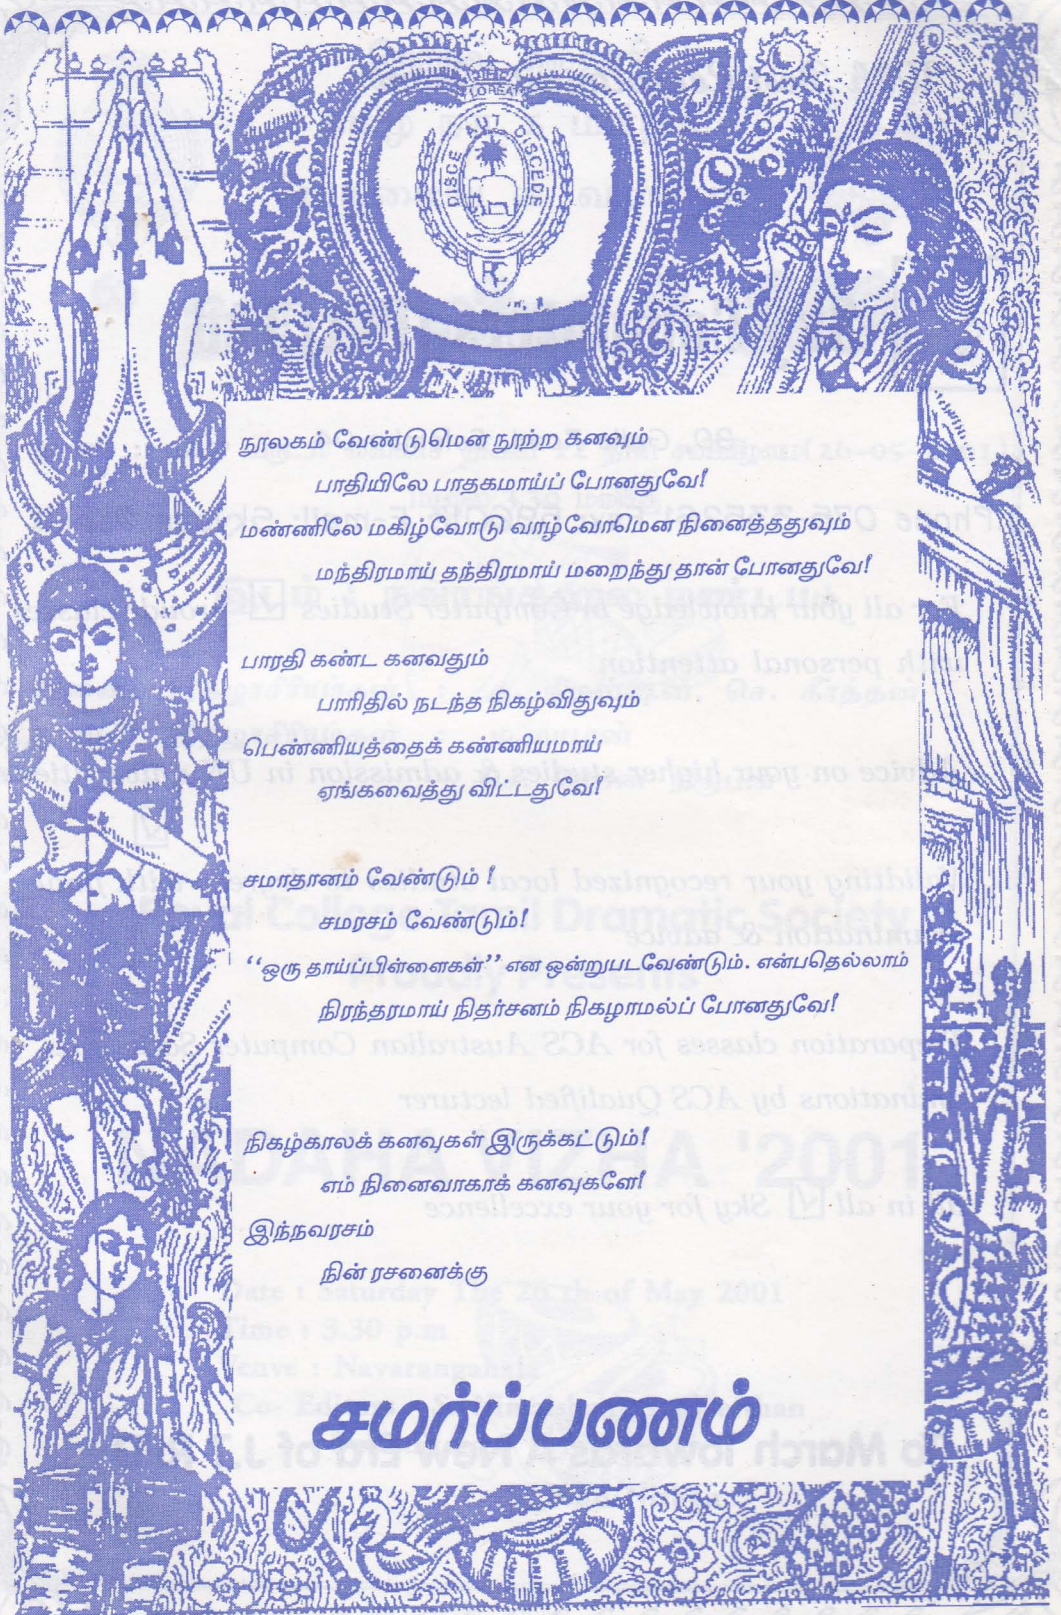 FLOREAT
DISCE AUT DISCEDE
RC
நூலகம் வேண்டுமென நூற்ற கனவும்
பாதியிலே பாதகமாய்ப் போனதுவே!
மண்ணிலே மகிழ்வோடு வாழ்வோமென நினைத்ததுவும்
மந்திரமாய் தந்திரமாய் மறைந்து தான் போனதுவே!
பாரதி கண்ட கனவதும்
பாரிதில் நடந்த நிகழ்விதுவும்
பெண்ணியத்தைக் கண்ணியமாய்
ஏங்கவைத்து விட்டதுவே!
சமாதானம் வேண்டும் !
சமரசம் வேண்டும்!
“ஒரு தாய்ப்பிள்ளைகள்” என ஒன்றுபடவேண்டும். என்பதெல்லாம்
நிரந்தரமாய் நிதர்சனம் நிகழாமல்ப் போனதுவே!
நிகழ்காலக் கனவுகள் இருக்கட்டும்!
எம் நினைவாகாக் கனவுகளே!
இந்நவரசம்
நின் ரசனைக்கு
சமர்ப்பணம்